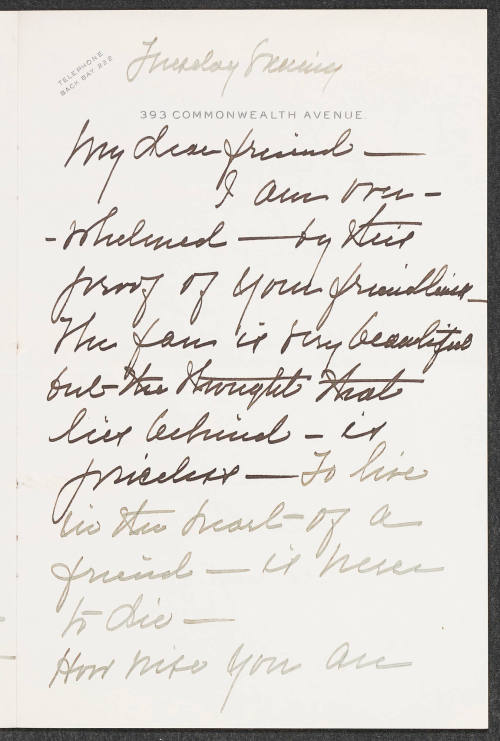 TELEPHONE
BACK BAY 222
Tuesday Evening
393 COMMONWEALTH AVENUE.
My dear friend —
I am over-
-whelmed — by this
proof of your friendliness —
The fan is very beautiful
but the thought that
lies behind — is
priceless — To live
in the heart of a
friend — is never
to die —
How wise you are